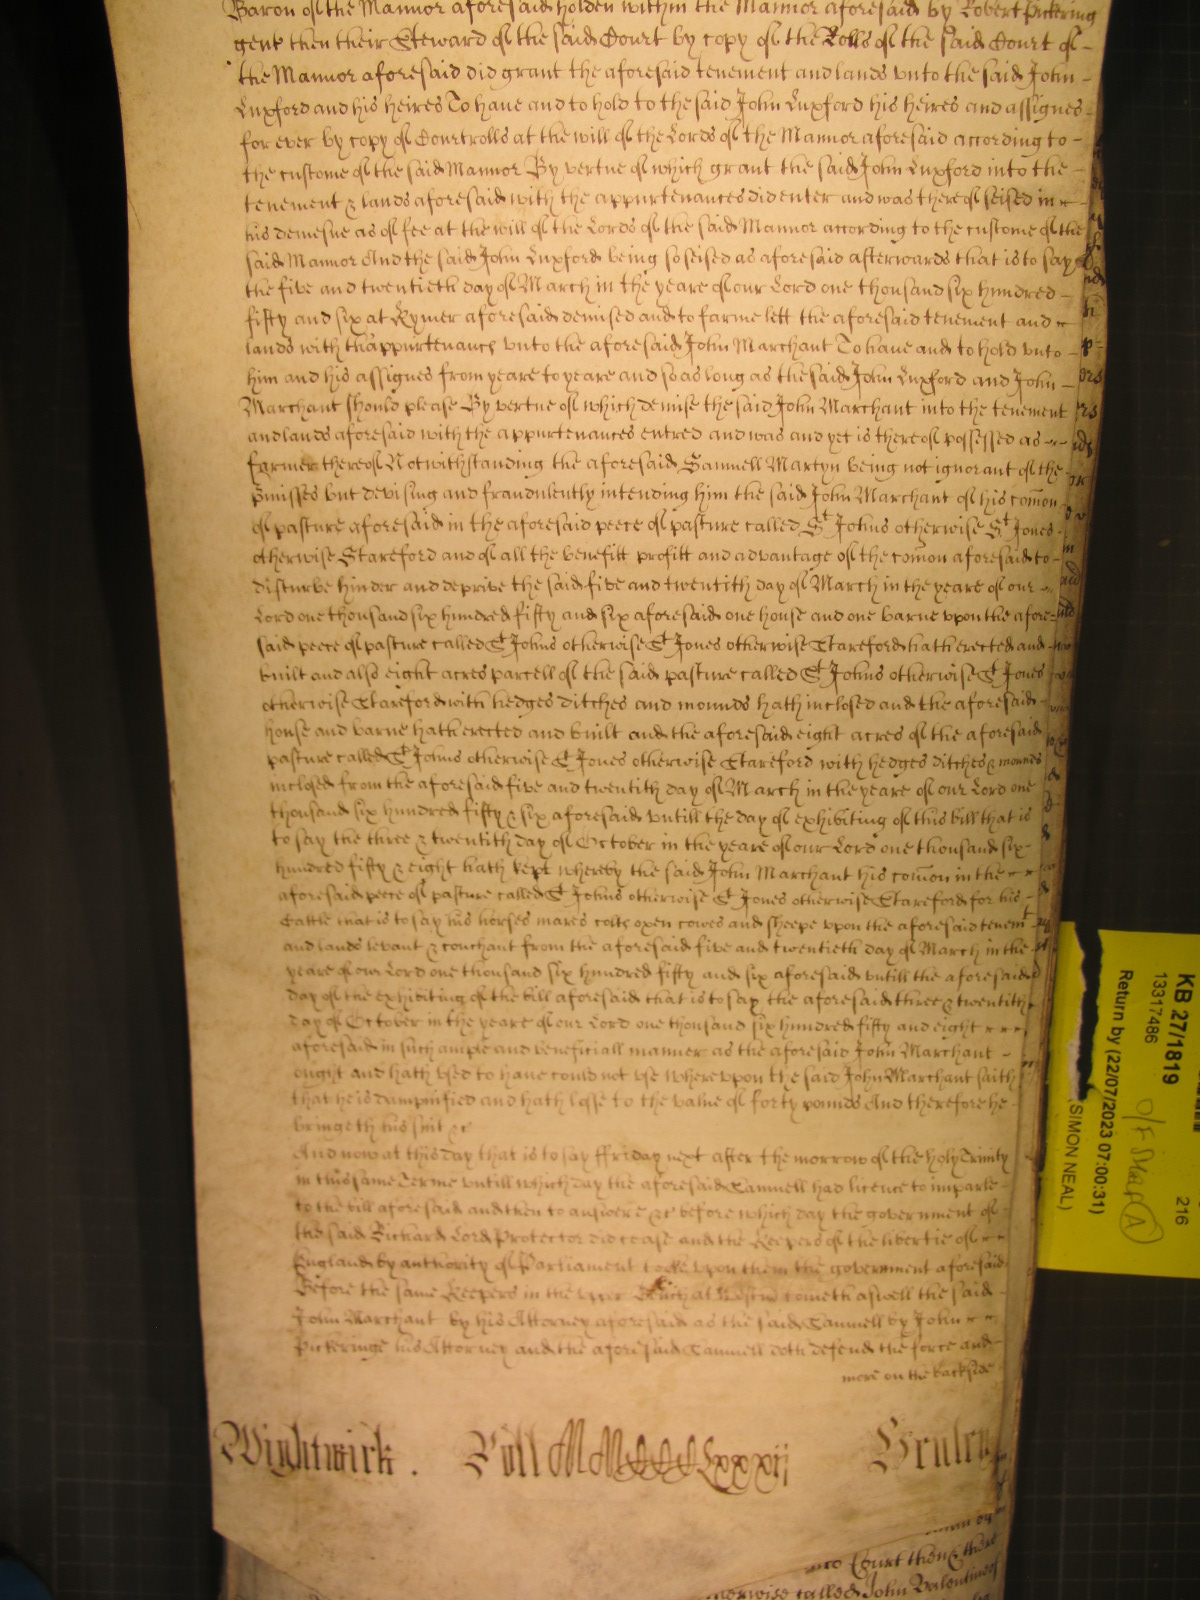 Baron of the Mannor aforesaid holden within the Mannor aforesaid by Robert Pickering
gent then their Steward of the said Court by copy of the Rolls of the said Court of
the Mannor aforesaid did grant the aforesaid tenement and lands vnto the said John
Luxford and his heires To haue and to hold to the said John Luxford his heires and assignes
for ever by copy of Courtrolls at the will of the Lords of the Mannor aforesaid according to
the custome of the said Mannor By vertue of which grant the said John Luxford into the
tenement & lands aforesaid with the appurtenances did enter and was thereof seised in
his demesne as of fee at the will of the Lords of the said Mannor according to the custome of the
said Mannor And the said John Luxford being so seised as aforesaid afterwards that is to say
the five and twentieth day of March in the yeare of our Lord one thousand six hundred
fifty and six at Rymer aforesaid demised and to farme lett the aforesaid tenement and
lands with th'appurtenances vnto the aforesaid John Marchant To haue and to hold vnto
him and his assignes from yeare to yeare and so as long as the said John Luxford and John
Marchant should please By vertue of which demise the said John Marchant into the tenement
and lands aforesaid with the appurtenances entred and was and yet is thereof possessed as
farmer thereof Notwithstanding the aforesaid Samuell Martyn being not ignorant of the
p̄misses but devising and fraudulently intending him the said John Marchant of his com̄on
of pasture aforesaid in the aforesaid peece of pasture called St Johns otherwise St Jones
otherwise Stareford and of all the benefitt profitt and advantage of the com̄on aforesaid to
disturbe hinder and deprive the said five and twentith day of March in the yeare of our
Lord one thousand six hundred fifty and six aforesaid one house and one barne vpon the afore
said peece of pasture called St Johns otherwise St Jones otherwise Stareford hath erected and
built and also eight acres parcell of the said pasture called St Johns otherwise St Jones
otherwise Stareford with hedges ditches and mounds hath inclosed and the aforesaid
house and barne hath erected and built and the aforesaid eight acres of the aforesaid
pasture called St Johns otherwise St Jones otherwise Stareford with hedges ditches & mounds
inclosed from the aforesaid five and twentith day of March in the yeare of our Lord one
thousand six hundred fifty & six aforesaid vntill the day of exhibiting of this bill that is
to say the three & twentith day of October in the yeare of our Lord one thousand six
hundred fifty & eight hath kept whereby the said John Marchant his com̄on in the
aforesaid peece of pasture called St Johns otherwise St Jones otherwise Stareford for his
Cattle that is to say his horses mares colts oxen cowes and sheepe vpon the aforesaid tenemt
and lands levant & couchant from the aforesaid five and twentieth day of March in the
yeare of our Lord one thousand six hundred fifty and six aforesaid vntill the aforesaid
day of the exhibiting of the bill aforesaid that is to say the aforesaid three & twentith
day of October in the yeare of our Lord one thousand six hundred fifty and eight
aforesaid in such ample and beneficiall manner as the aforesaid John Marchant
ought and hath vsed to haue could not vse Wherevpon the said John Marchant saith
that he is dampnified and hath losse to the value of forty pounds And therefore he
bringeth his suit &c
And now at this day that is to say ffriday next after the morrow of the holy Trinity
in this same Terme vntill which day the aforesaid Samuell had licence to imparle
to the bill aforesaid and then to answere &c before which day the government of
the said Richard Lord Protector did cease and the Keepers of the libertie of
England by authority of Parliament tooke vpon them the government aforesaid
Before the same Keepers in the vpper Bench at Westm̄ cometh aswell the said
John Marchant by his Attorney aforesaid as the said Samuell by John
Pickeringe his Attorney and the aforesaid Samuell doth defend the force and
more on the backside
Wightwick . Roll MMCCCCLxxxij
into Court then & there
otherwise called John Valentine of
KB 27/1819
216
13317486
O/F
A
Return by (22/07/2023 07:00:31)
SIMON NEAL)